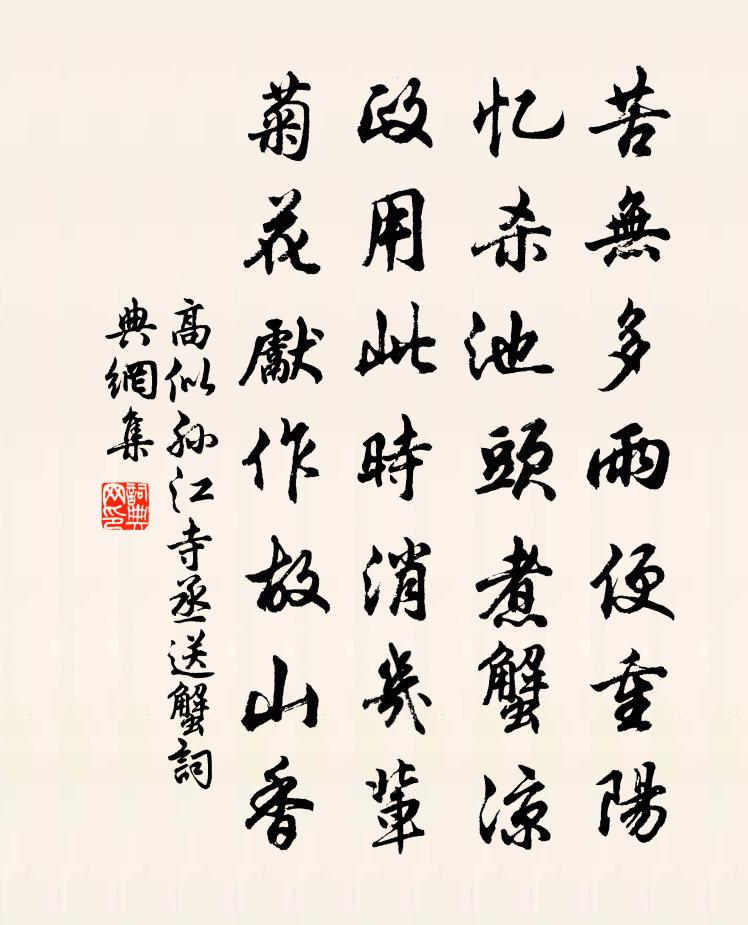 苦無多雨便重陽
忆杀池頭煮蟹凉
政用此時消幾輩
菊花獻作故山香
高似孙江寺丞送蟹詞
典網集
詞典网印